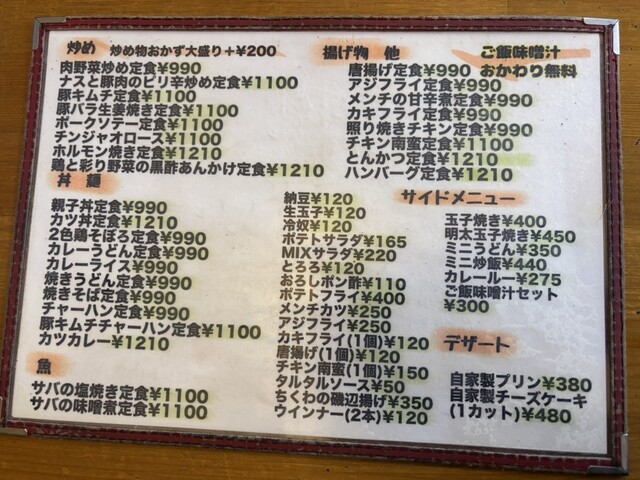 炒め 炒め物おかず大盛り+¥200
肉野菜炒め定食¥990
ナスと豚肉のピリ辛炒め定食¥1100
豚キムチ定食¥1100
豚バラ生姜焼き定食¥1100
ポークソテー定食¥1100
チンジャオロース¥1100
ホルモン焼き定食¥1210
鶏と彩り野菜の黒酢あんかけ定食¥1210
揚げ物 他
唐揚げ定食¥990
アジフライ定食¥990
メンチの甘辛煮定食¥990
カキフライ定食¥990
照り焼きチキン定食¥990
チキン南蛮定食¥1100
とんかつ定食¥1210
ハンバーグ定食¥1210
ご飯味噌汁
おかわり無料
丼 麺
親子丼定食¥990
カツ丼定食¥1210
2色鶏そぼろ定食¥990
カレーうどん定食¥990
カレーライス¥990
焼きうどん定食¥990
焼きそば定食¥990
チャーハン定食¥990
豚キムチチャーハン定食¥1100
カツカレー¥1210
魚
サバの塩焼き定食¥1100
サバの味噌煮定食¥1100
納豆¥120
生玉子¥120
冷奴¥120
ポテトサラダ¥165
MIXサラダ¥220
とろろ¥120
おろしポン酢¥110
ポテトフライ¥400
メンチカツ¥250
アジフライ¥250
カキフライ(1個)¥120
唐揚げ(1個)¥120
チキン南蛮(1個)¥150
タルタルソース¥50
ちくわの磯辺揚げ¥350
ウインナー(2本)¥120
サイドメニュー
玉子焼き¥400
明太玉子焼き¥450
ミニうどん¥350
ミニ炒飯¥440
カレールー¥275
ご飯味噌汁セット
¥300
デザート
自家製プリン¥380
自家製チーズケーキ
(1カット)¥480